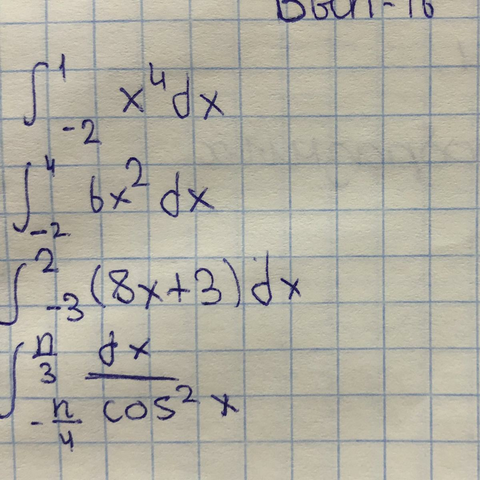 ∫₋₂¹ x⁴dx
∫₋₂⁴ 6x² dx
∫₋₃² (8x+3) dx
∫_{-π/4}^{π/3} dx/cos² x